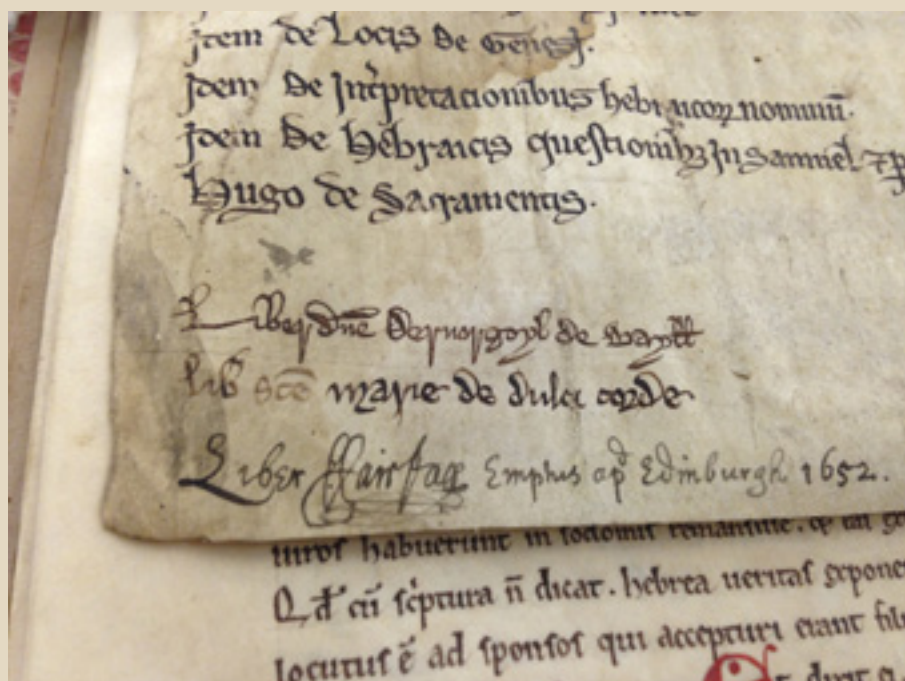 Item de Locis de Gen̄esi.
Idem De Int̉pretacionibus hebraicoꝝ nominū.
Idem De Hebraicis questionibꝫ In Samuel. ⁊
Hugo de Sacramentis.
Liber dn̄e Deruorgoyl de
Lib̄ sc̄e marie de dulci corde
Liber ffairfax Emptus ap̄ Edinburgh 1652.
uiros habuerunt in sodomis remansisse.
Q d̄ cū sc̉ptura n̄ dicat. hebrea ueritas
locutus ē ad sponsos qui accepturi erant